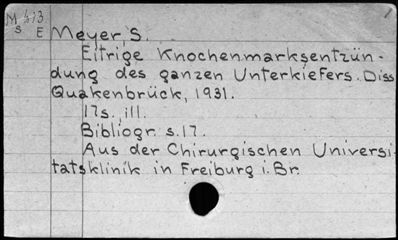 M 413
S E
Meyer S.
Eitrige Knochenmarksentzün-
dung des ganzen Unterkiefers. Diss
Quakenbrück, 1931.
17s. ill.
Bibliogr. s. 17.
Aus der Chirurgischen Universi-
tatsklinik in Freiburg i. Br.